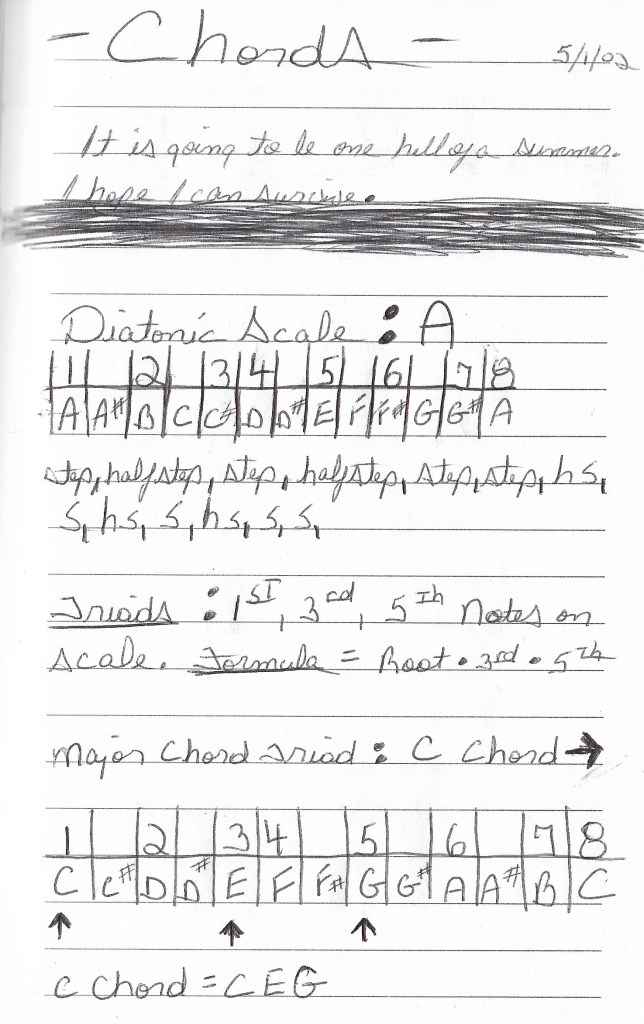 - Chords -
5/1/02
It is going to be one hell of a summer.
I hope I can survive.
Diatonic Scale : A
1 2 3 4 5 6 7 8
A A# B C C# D D# E F F# G G# A
step, half step, step, half step, step, step, hs,
s, hs, s, hs, s, s,
Triads : 1ST, 3rd, 5Th Notes on
Scale. Formula = Root • 3rd • 5th
Major Chord Triad : C Chord →
1 2 3 4 5 6 7 8
C C# D D# E F F# G G# A A# B C
↑ ↑ ↑
C Chord = C E G